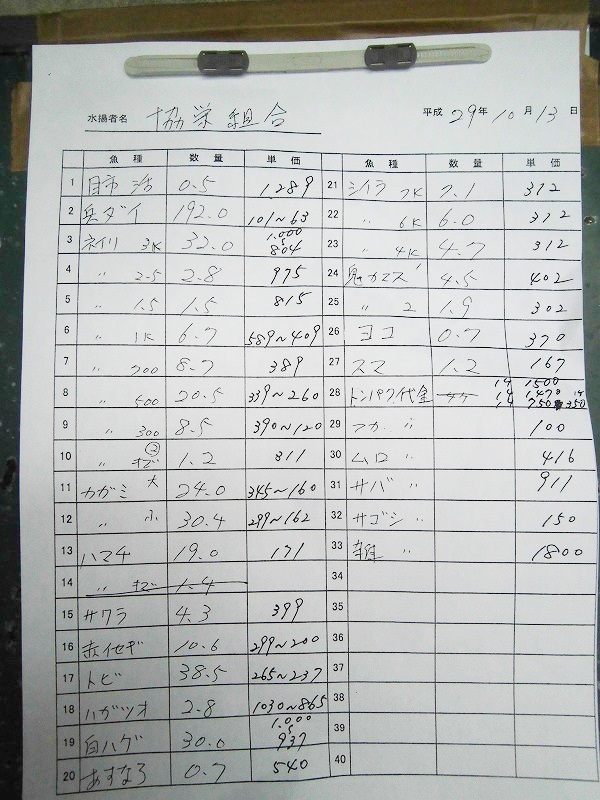 水揚者名 協栄組合 平成 29年 10月 13日
魚種 数量 単価
1 活 0.5 1,289
2 兵ダイ 192.0 101~63
3 ネイリ 3K 32.0 1,000~804
4 〃 2.5 2.8 975
5 〃 1.5 1.5 815
6 〃 1K 6.7 589~409
7 〃 700 8.7 389
8 〃 500 20.5 339~260
9 〃 300 8.5 390~120
10 〃 ② キズ 1.2 311
11 カガミ 大 24.0 345~160
12 〃 小 30.4 299~162
13 ハマチ 19.0 171
14 〃 キズ 1.4
15 サワラ 4.3 399
16 赤イセギ 10.6 299~200
17 トビ 38.5 265~237
18 ハガツオ 2.8 1030~865
19 白ハゲ 30.0 1,000~937
20 あすなろ 0.7 540
魚種 数量 単価
21 シイラ 7K 7.1 312
22 〃 6K 6.0 312
23 〃 4K 4.7 312
24 鬼カマス 4.5 402
25 〃 2 1.9 302
26 ヨコ 0.7 370
27 スマ 1.2 167
28 トンパク代金 14 1500
14 1470
14 750 350
29 アカ 〃 100
30 ムロ 〃 416
31 サバ 〃 911
32 サゴシ 〃 150
33 雑 〃 1800
34
35
36
37
38
39
40